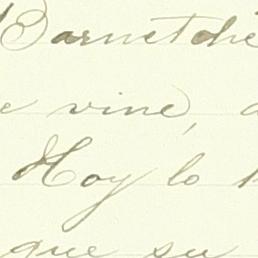 Barnetche
e vine, a
Hoy lo
que su